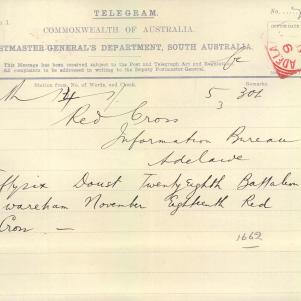 TELEGRAM.
No.
COMMONWEALTH OF AUSTRALIA.
POSTMASTER-GENERAL'S DEPARTMENT, SOUTH AUSTRALIA.
This Message has been received subject to the Post and Telegraph Act and
All complaints to be addressed in writing to the Deputy Postmaster General.
Station from, No. of Words, and Check. Remarks
ADELA
5 301
3
Red Cross
Information Bureau
Adelaide
Doust Twenty Eighth Battalion
wareham November Eighteenth Red
Cross —
1662